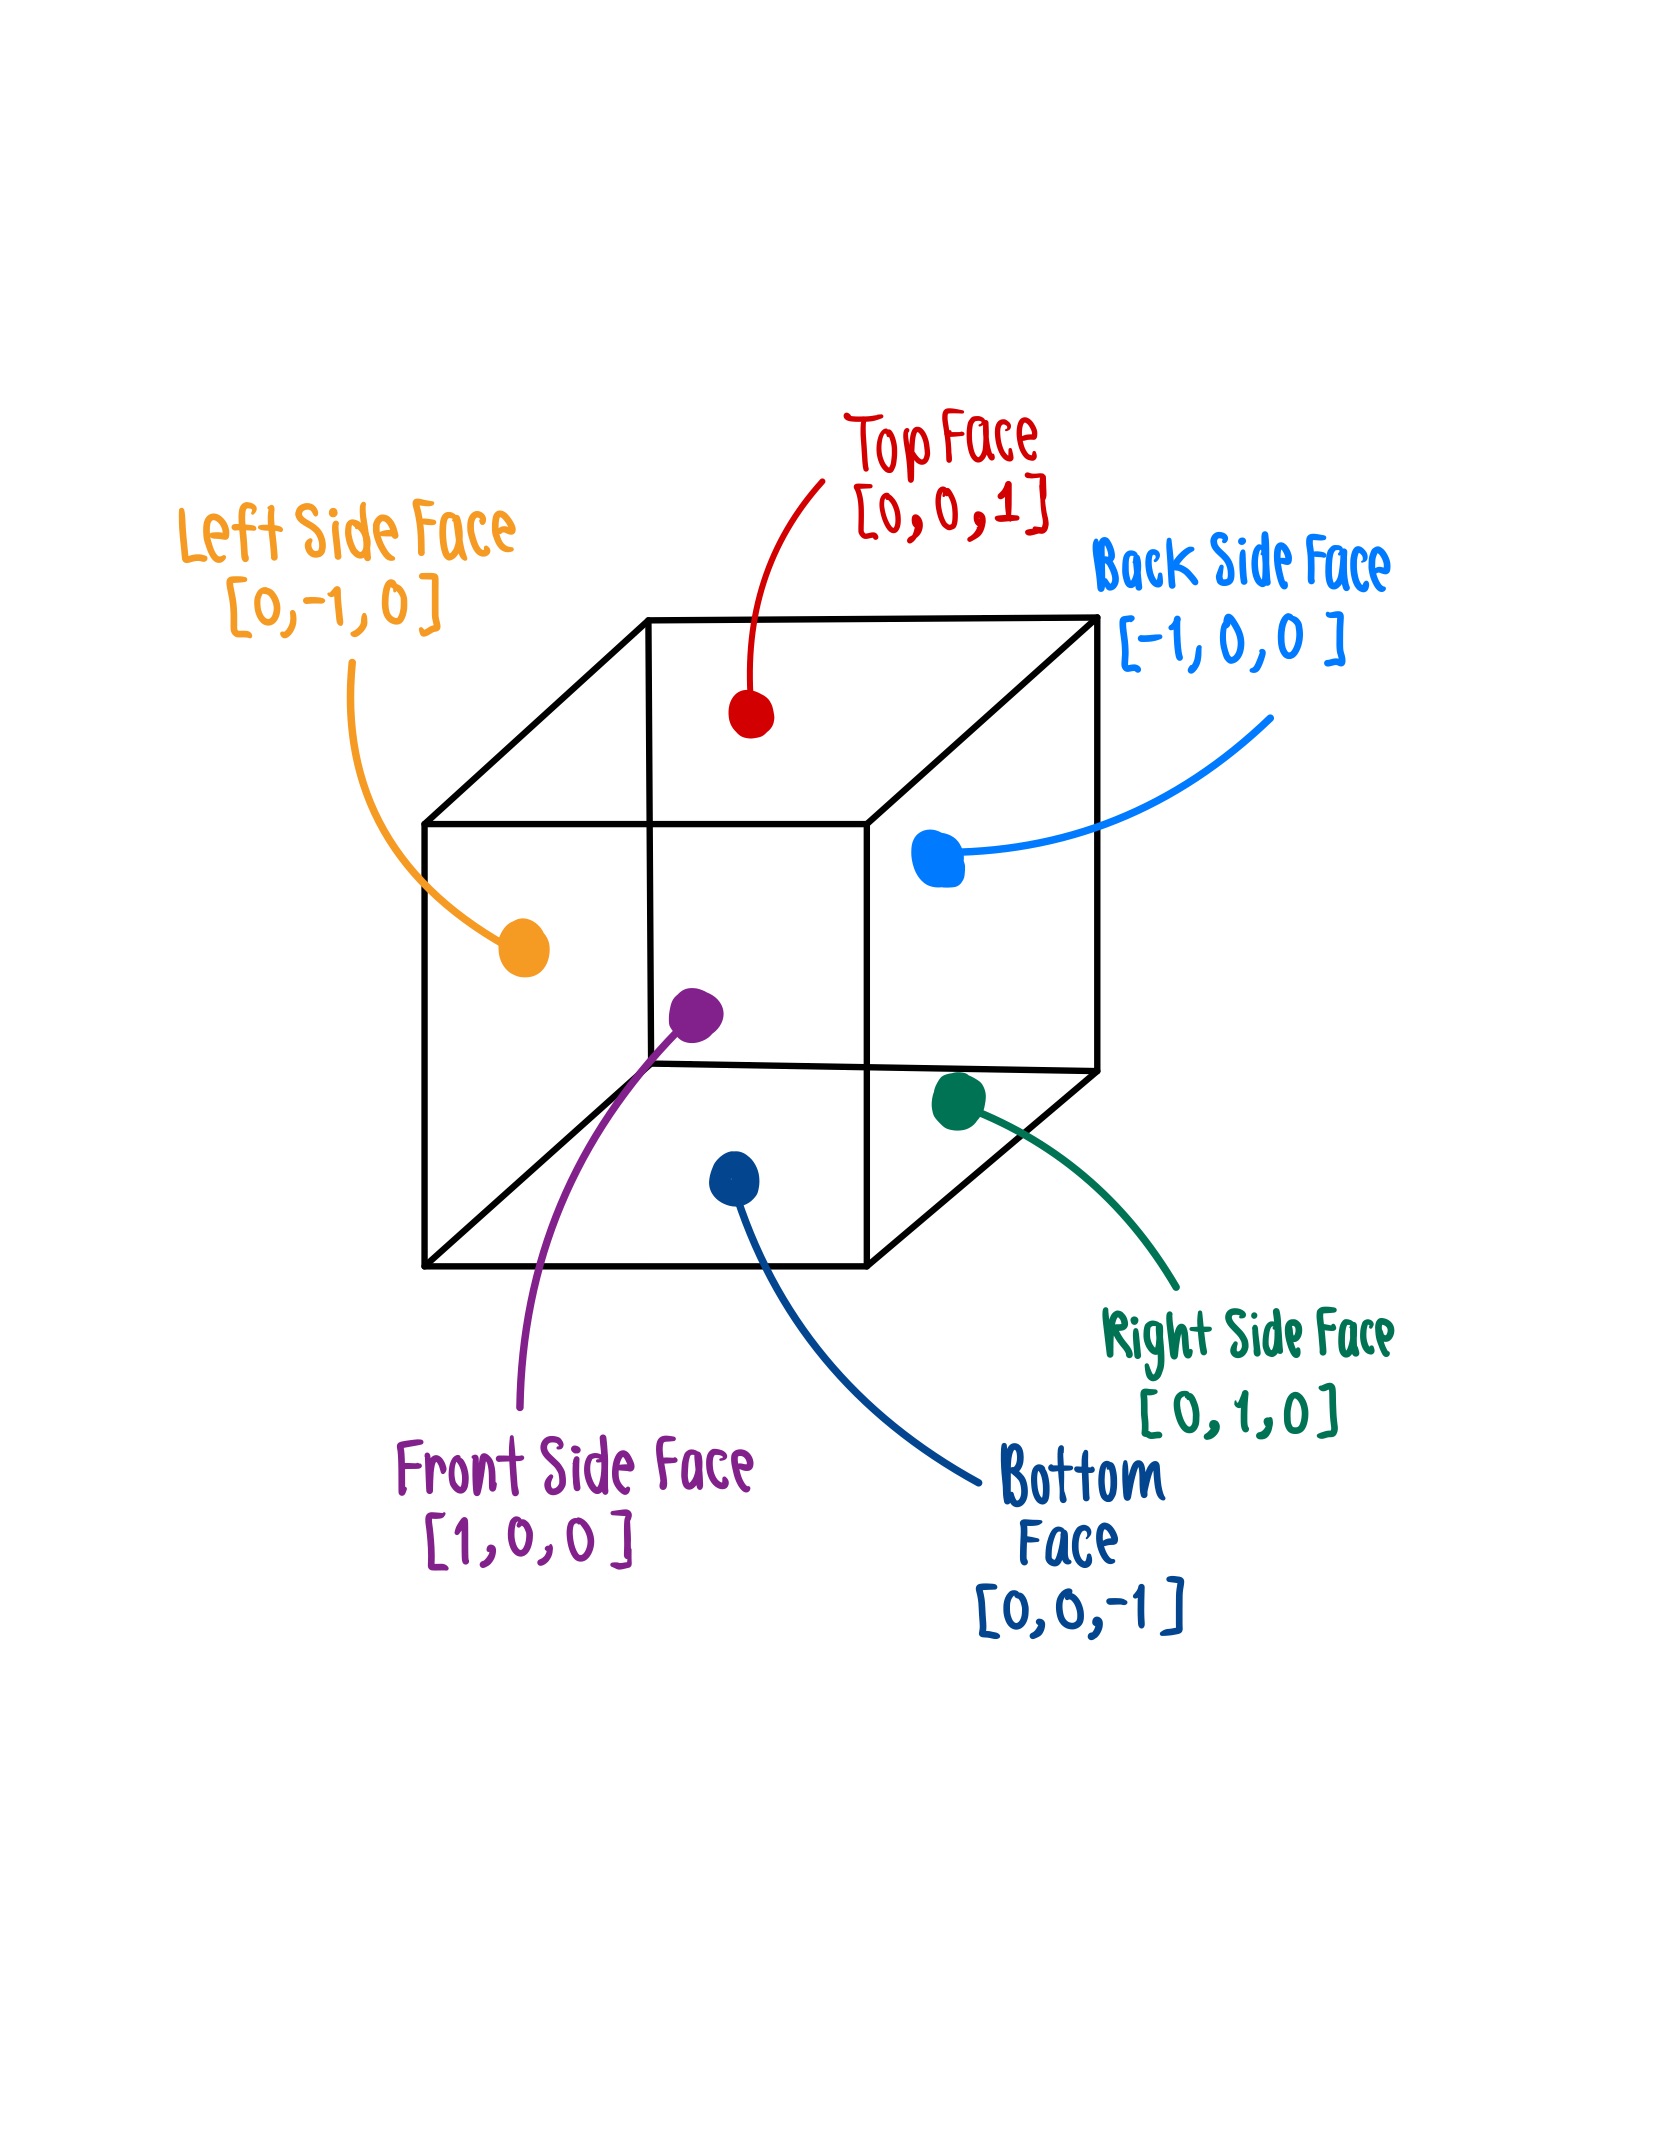 Top Face
[0,0,1]
Left Side Face
[0,-1,0]
Back Side Face
[-1,0,0]
Right Side Face
[0,1,0]
Front Side Face
[1,0,0]
Bottom
Face
[0,0,-1]